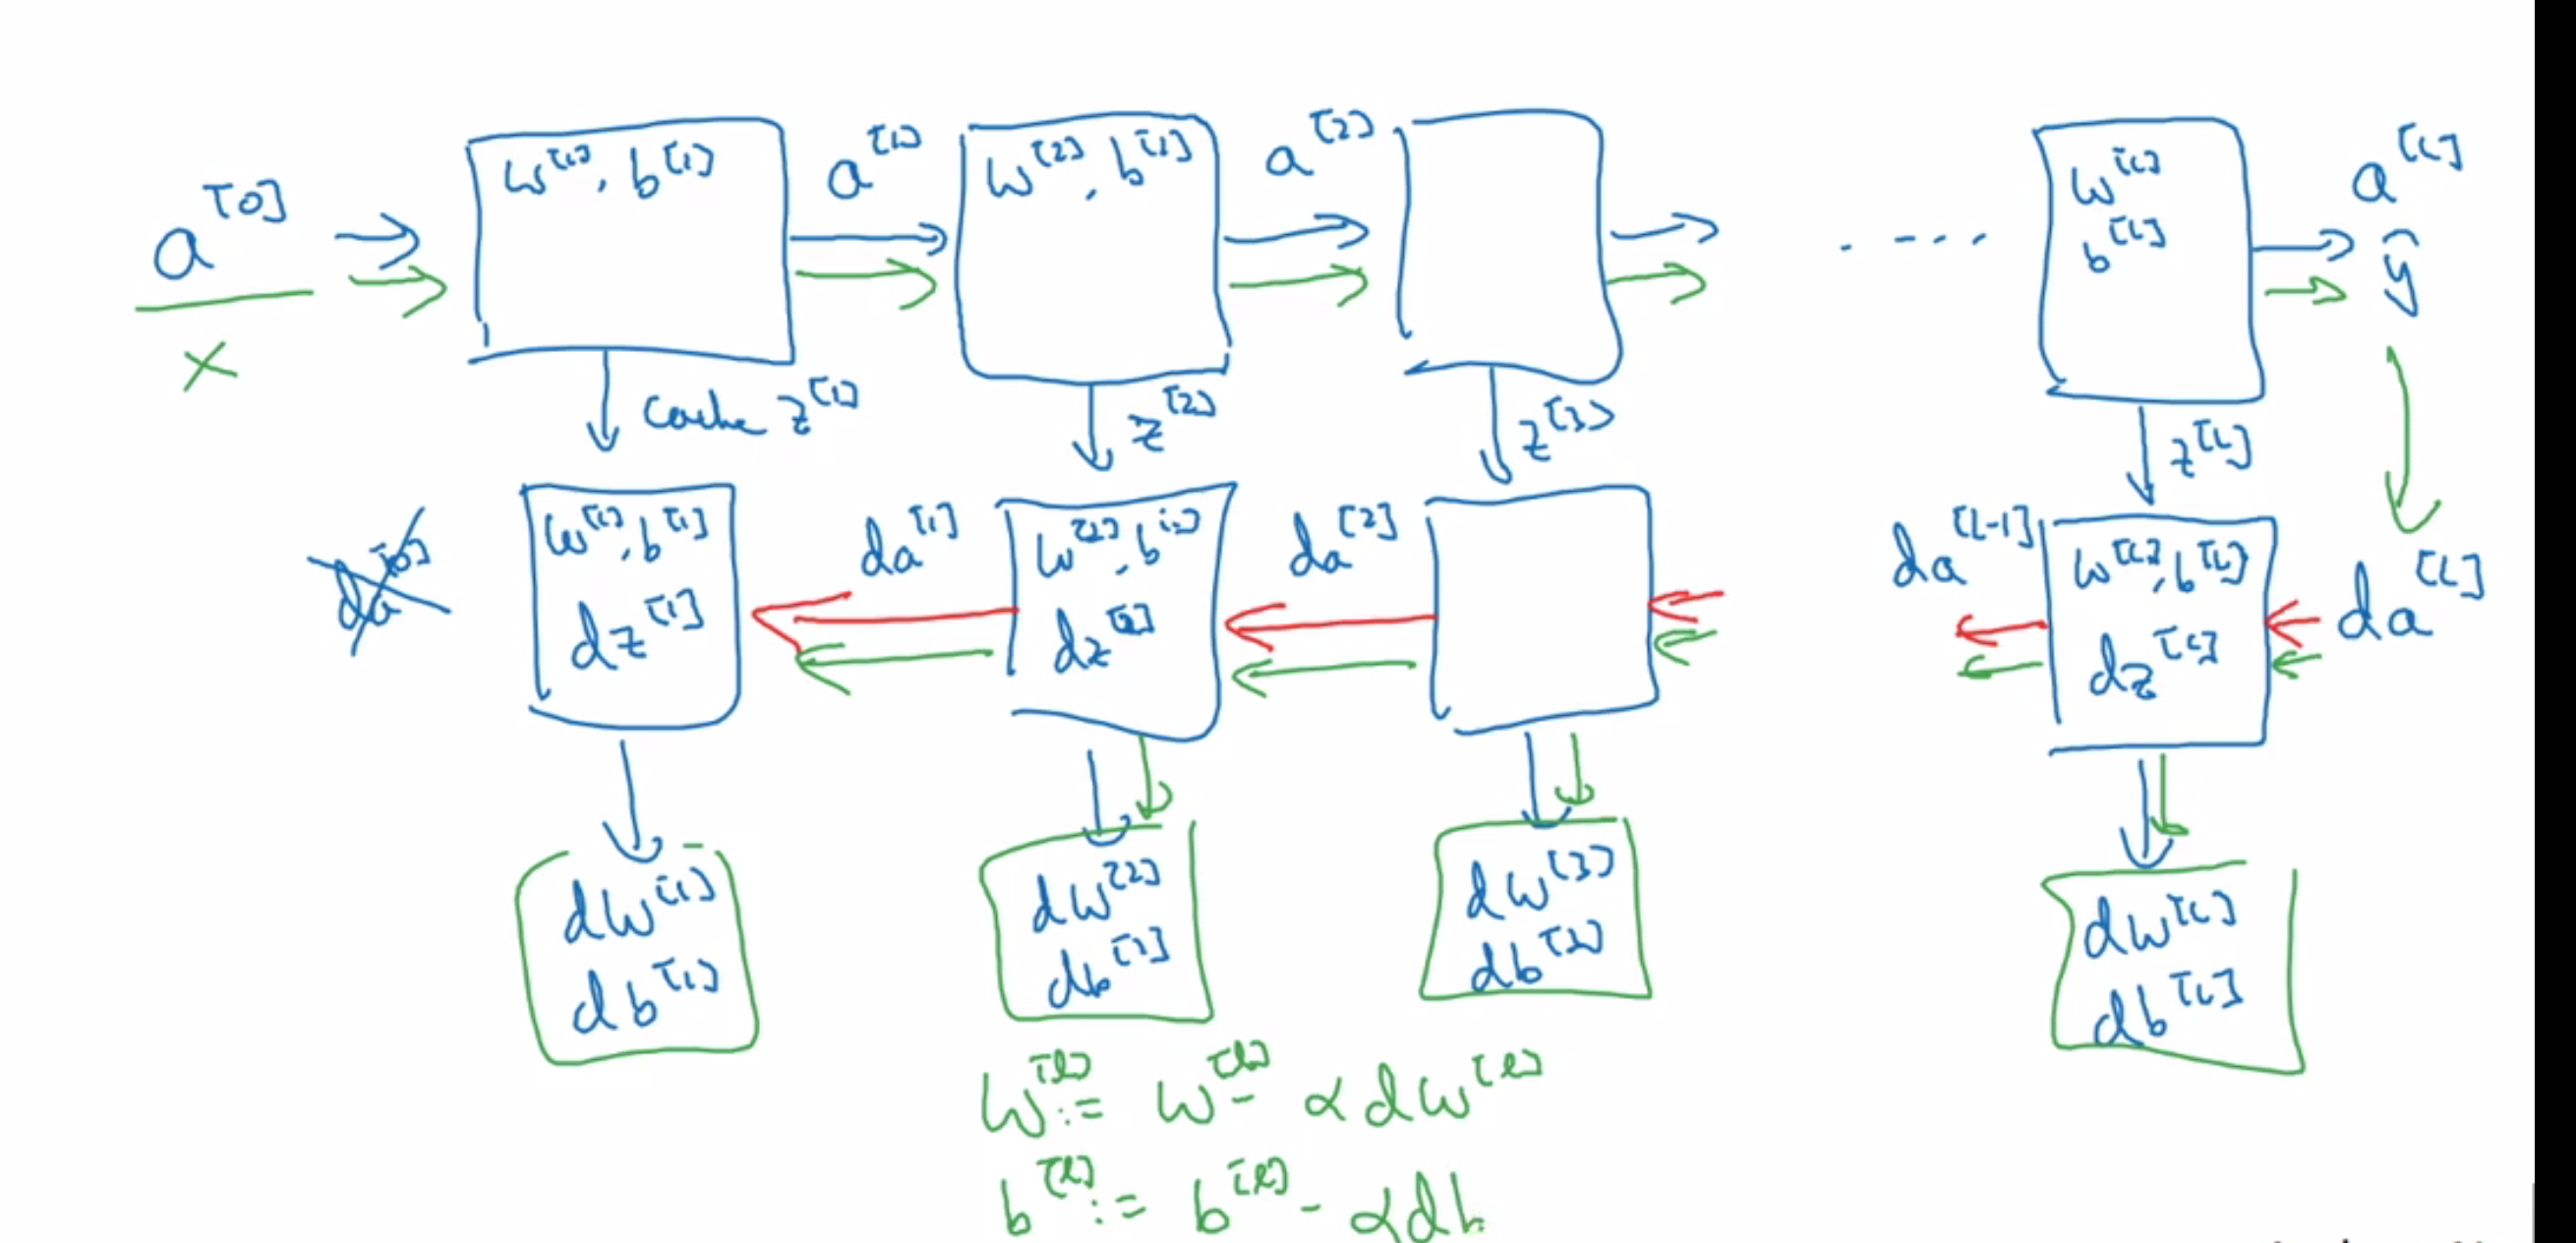 a^[0]
x
w^[1], b^[1]
a^[1]
w^[2], b^[2]
a^[2]
. - - . .
w^[L]
b^[L]
a^[L]
ŷ
cache z^[1]
z^[2]
z^[3]
z^[L]
da^[0]
w^[1], b^[1]
dz^[1]
da^[1]
w^[2], b^[2]
dz^[2]
da^[2]
da^[L-1]
w^[L], b^[L]
dz^[L]
da^[L]
dw^[1]
db^[1]
dw^[2]
db^[2]
dw^[3]
db^[3]
dw^[L]
db^[L]
w^[l] := w^[l] - αdw^[l]
b^[l] := b^[l] - αdb